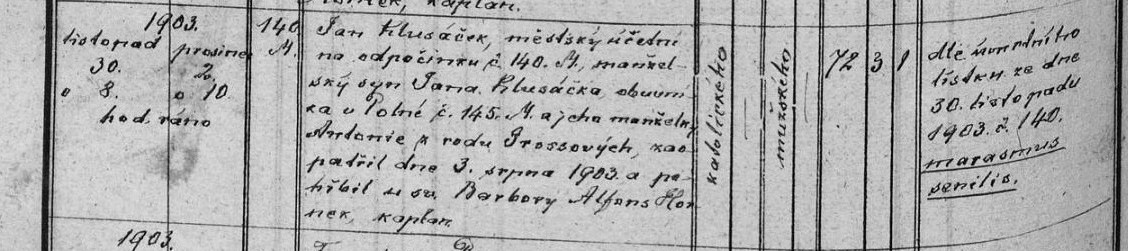 nek, kaplan.
1903.
listopad prosinec
30. 2.
o 8. o 10.
hod. ráno
140.
M.
Jan Klusáček, městský účetní
na odpočinku č. 140. M., manžel-
ský syn Jana Klusáčka, obuvní-
ka v Polné č. 145. M. a jeho manželky
Antonie z rodu Prossových, zao-
patřil dne 3. srpna 1903 a po-
hřbil u sv. Barbory Alfons Hor-
nek, kaplan.
katolického
mužského
72 3 1
dle úmrtního
lístku ze dne
30. listopadu
1903. č. 140.
marasmus
senilis.
1903.